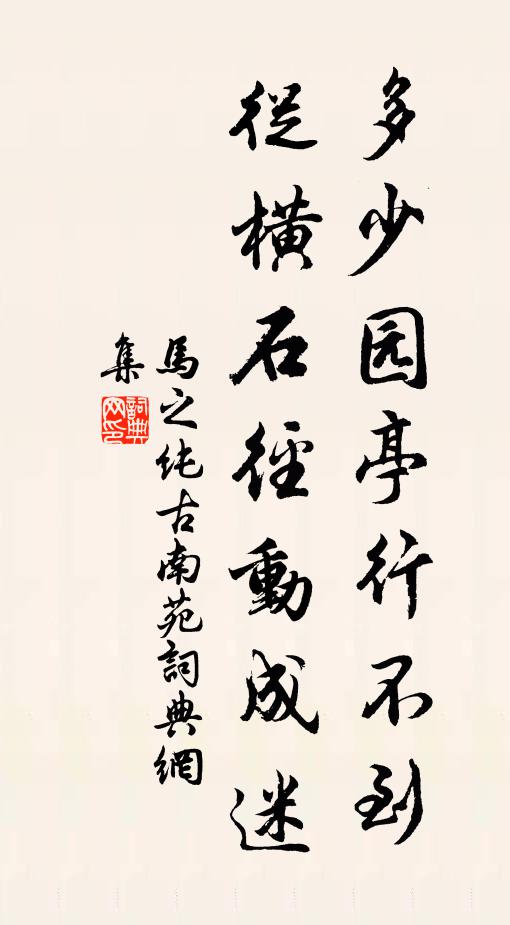 多少园亭行不到
從橫石徑動成迷
馬之純古南苑詞典網
集
詞典
网印